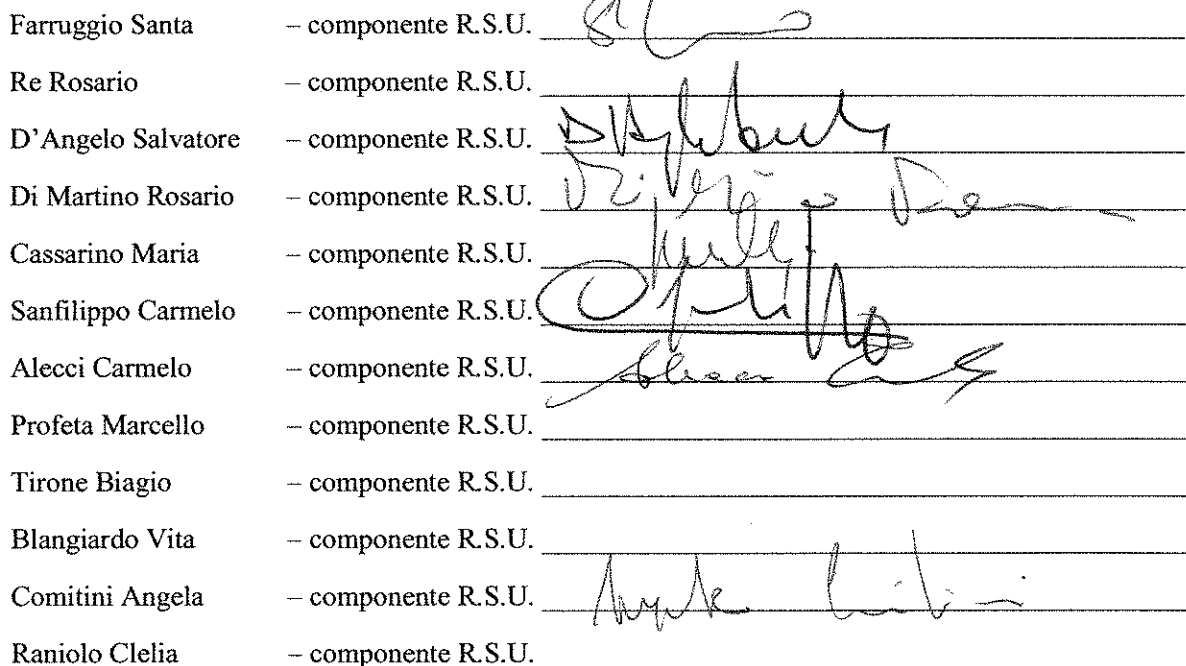 Farruggio Santa – componente R.S.U.
Re Rosario – componente R.S.U.
D'Angelo Salvatore – componente R.S.U.
Di Martino Rosario – componente R.S.U.
Cassarino Maria – componente R.S.U.
Sanfilippo Carmelo – componente R.S.U.
Alecci Carmelo – componente R.S.U.
Profeta Marcello – componente R.S.U.
Tirone Biagio – componente R.S.U.
Blangiardo Vita – componente R.S.U.
Comitini Angela – componente R.S.U.
Raniolo Clelia – componente R.S.U.